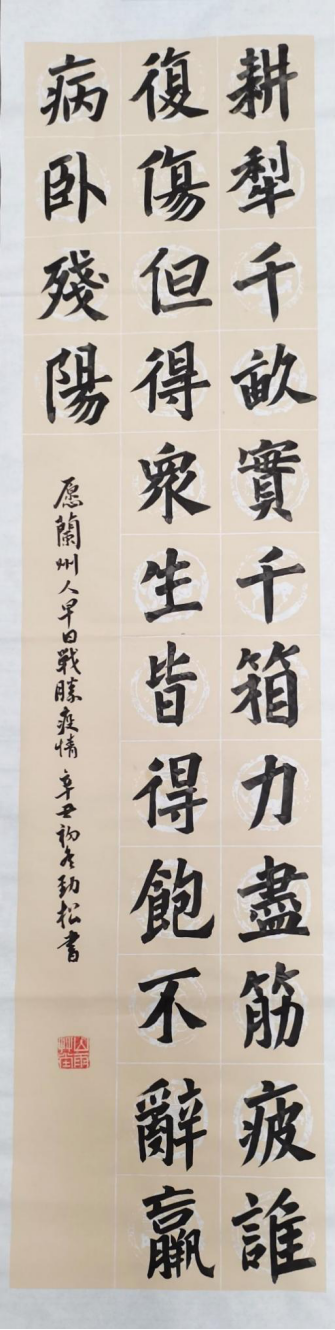 耕犁千畝實千箱力盡筋疲誰
復傷但得衆生皆得飽不辭羸
病卧殘陽
愿蘭州人早日戰勝疫情 辛丑初冬劲松書